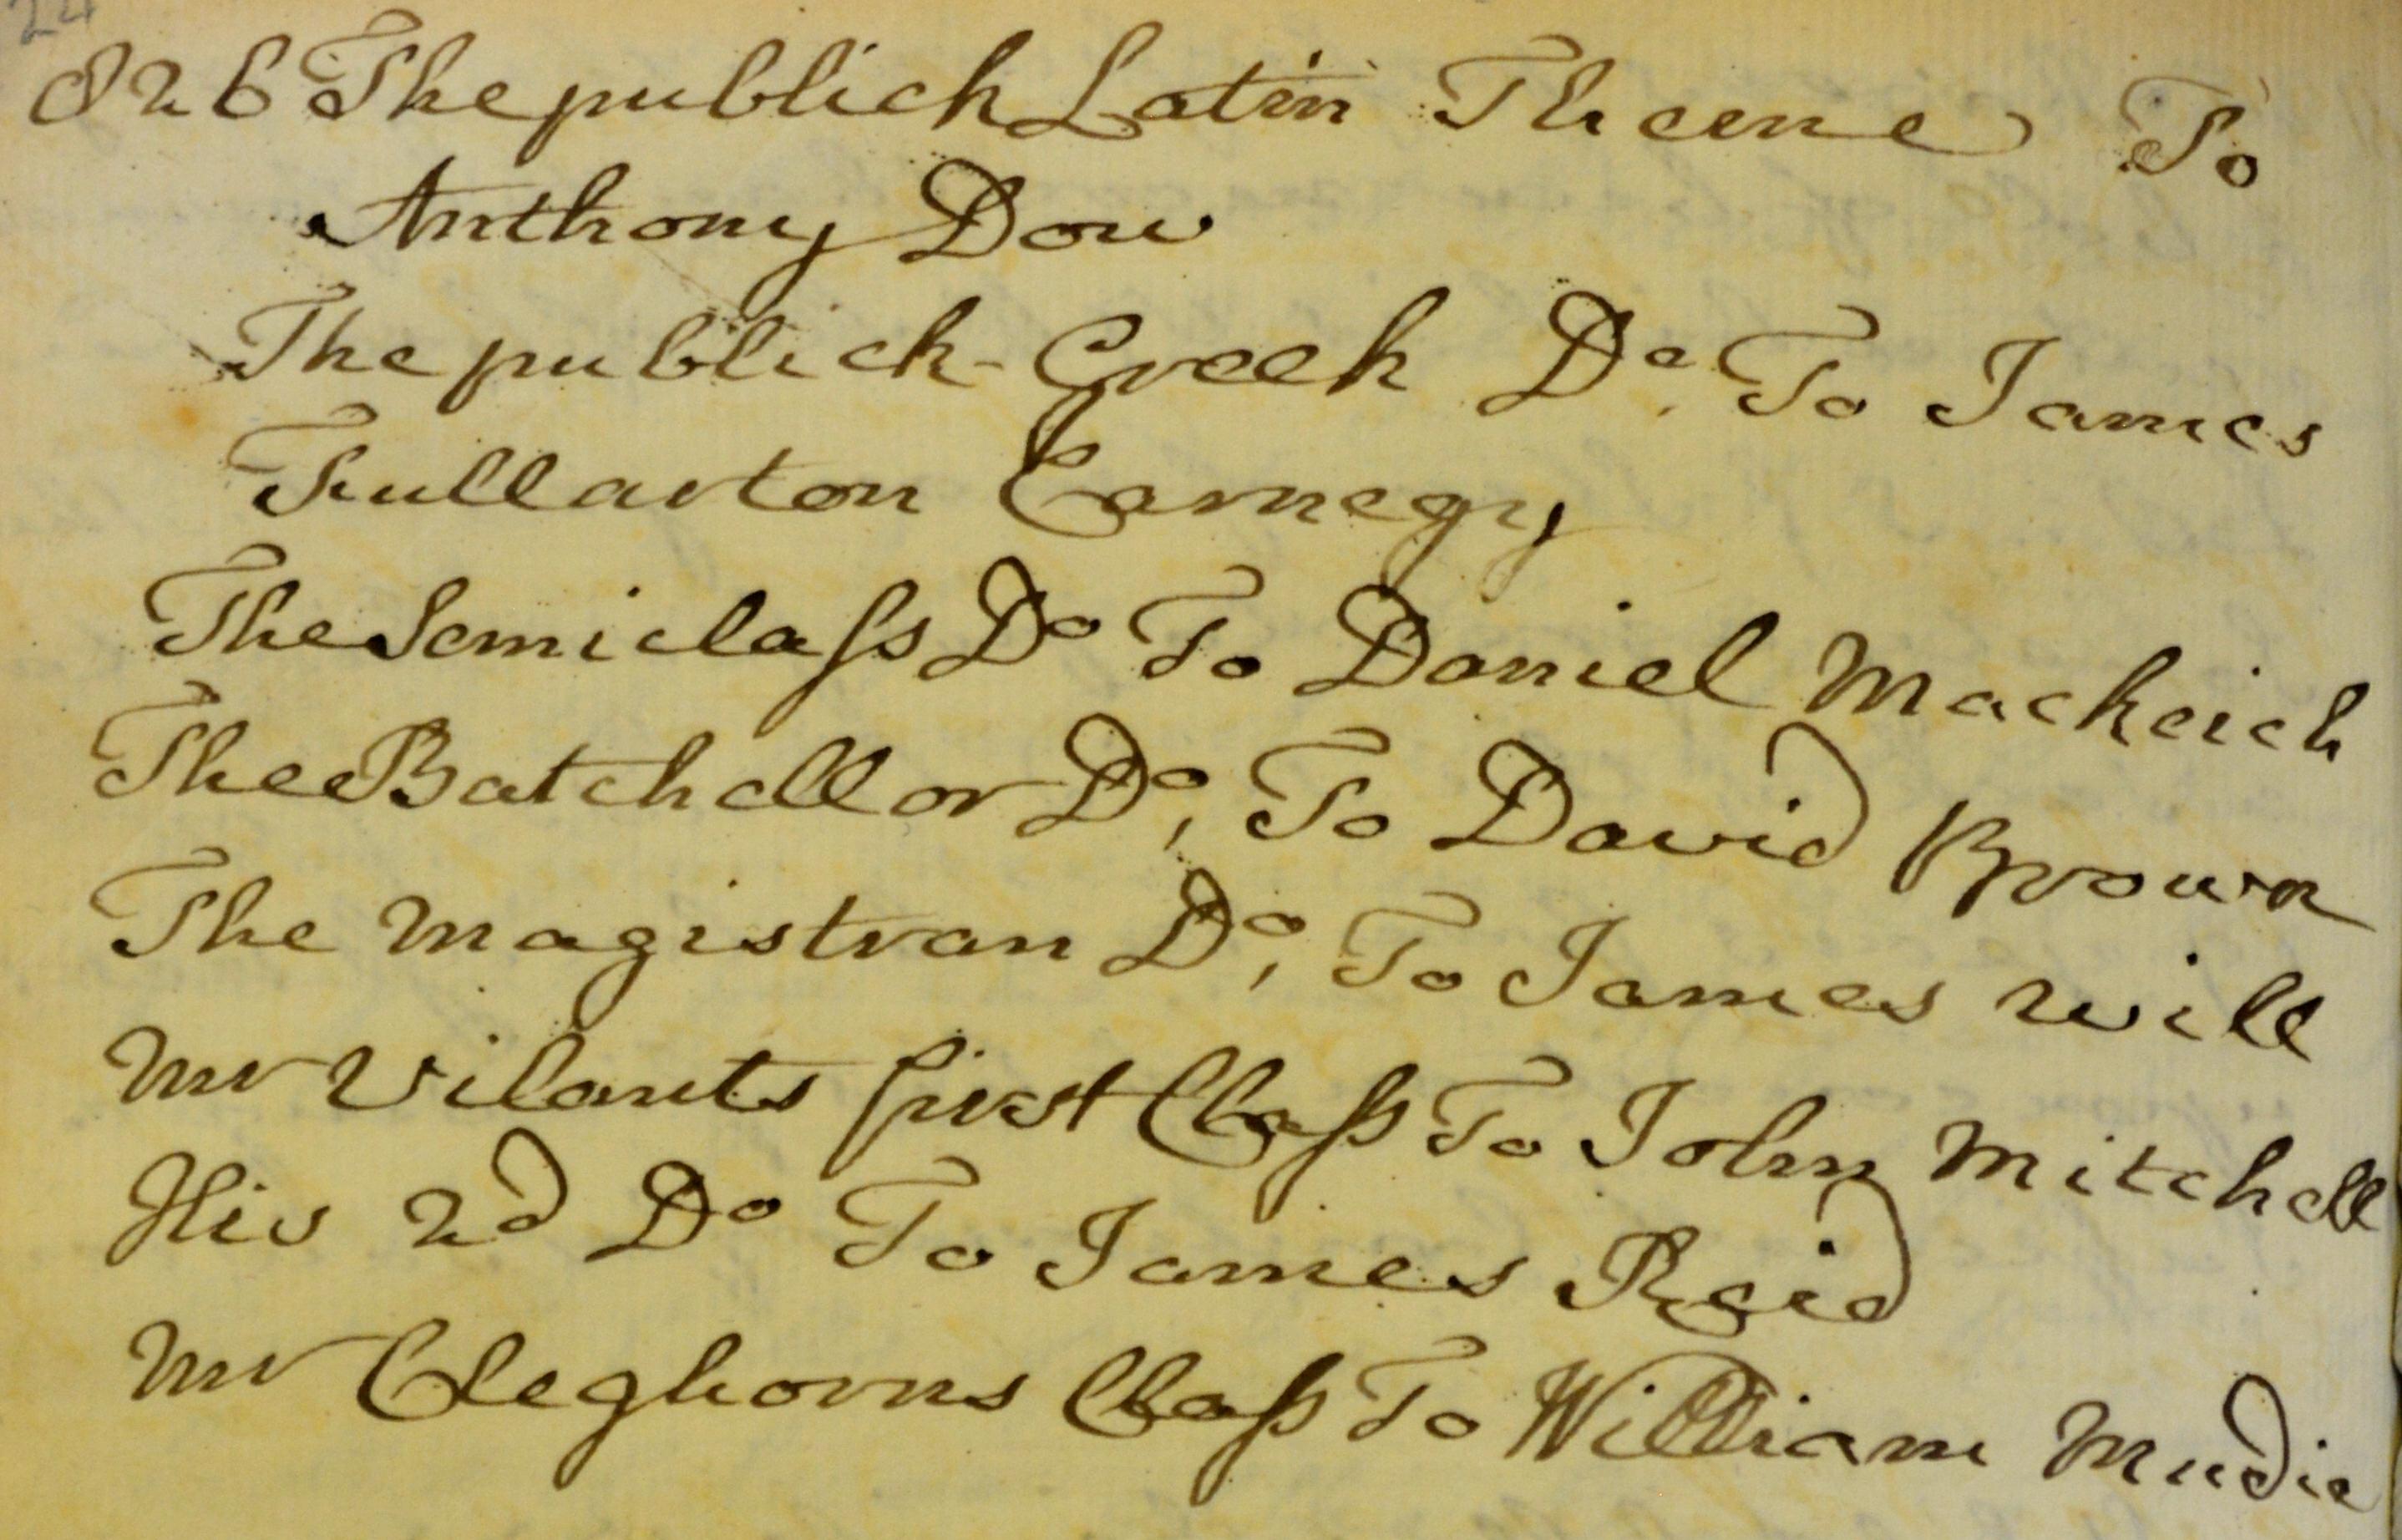 24
826 The publick Latin Theeme To
Anthony Dow
The publick Greek Do. To James
Fullarton Carnegy
The Semiclaſs Do To Daniel Mackeich
The Batchellor Do, To David Brown
The Magistran Do, To James Will
Mr Vilants first Claſs To John Mitchell
His 2d Do To James Reid
Mr Cleghorns Claſs To William Mudie